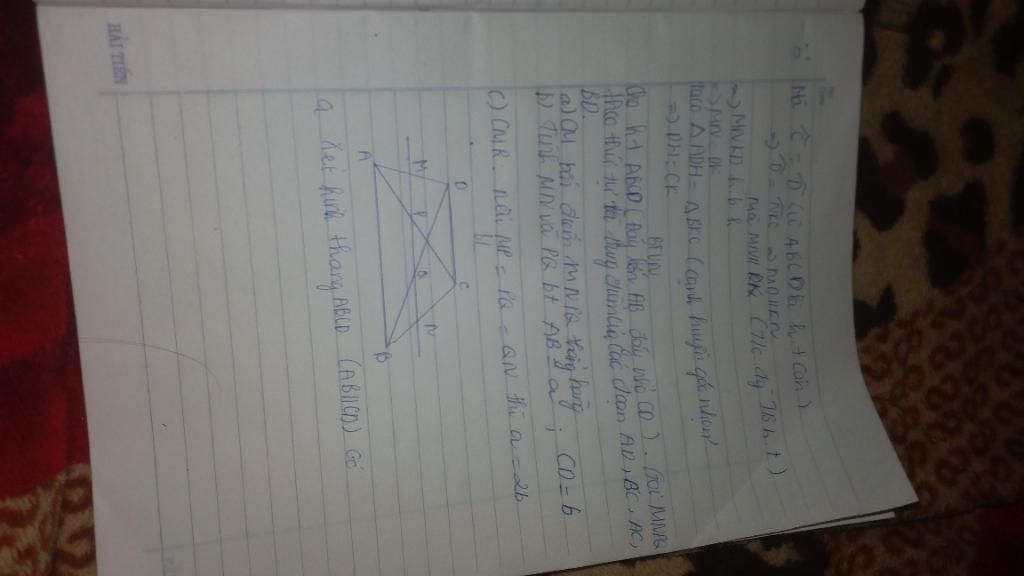 Mà Ĉ = D̂ (vì ABCD là h. t cân)
=> D̂ =
mà MN // DK (T/c đg TB h. t)
=> MNKD là h. b. h
=> MN = DK
ΔADH = ΔBKC (cạnh huyền góc nhọn)
=> DH = CK
BTVN
Cho h.t ABCD (đáy lớn AB đáy nhỏ CD). Gọi MNPQ
theo thứ tự là trung điểm của các đoạn AD, BC, AC,
BD.
a) CM bốn điểm M N P Q thẳng hàng
b) Tính MN và PQ bt AB = a ; CD = b
c) CMR. nếu MP = PQ = QN thì a = 2b
D
C
M
P
Q
N
A
B
a, Xét hình thang ABCD (AB//CD) có
HẢI TIẾN